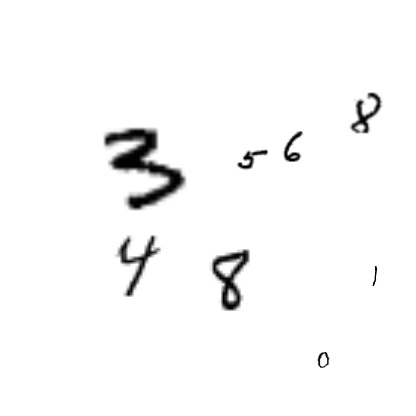 8
3 5 6
4 8 1
0